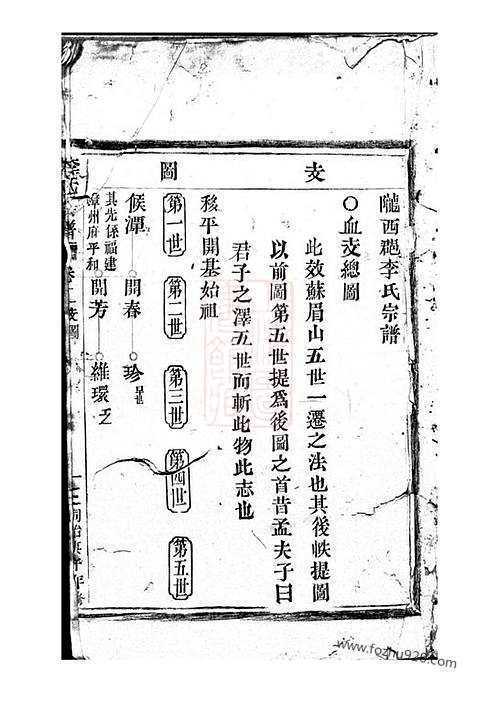 支圖
隴西郡李氏宗譜
〇血支總圖
此效蘇眉山五世一遷之法也其後帙提圖
以前圖第五世提爲後圖之首昔孟夫子曰
君子之澤五世而斬此物此志也
移平開基始祖
第一世 第二世 第三世 第四世 第五世
候潭 開春 珍
其先係福建
漳州府平和
開芳 維環
譜 卷 支圖
同治庚午年
www.fozhu920.com